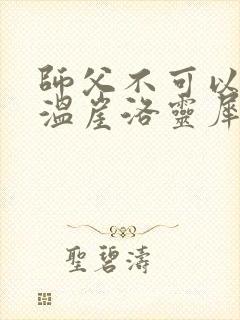 師父不可以
溫崖洛靈犀
聖碧濤